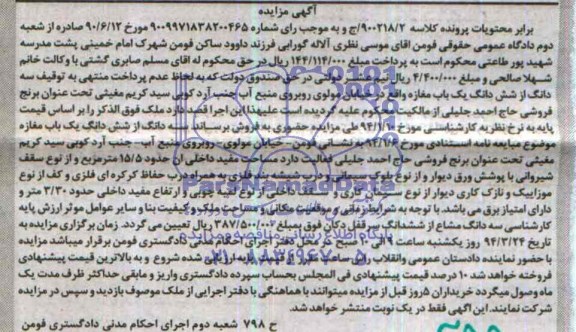 آگهی مزایده
برابر محتویات پرونده کلاسه ۹۰۰۲۱۸/۲/ج و به موجب رای شماره ۹۰۰۹۹۷۱۸۳۸۲۰۰۴۶۵ مورخ ۹۰/۶/۱۲ صادره از شعبه
دوم دادگاه عمومی حقوقی فومن آقای موسی نظری آلاله گورابی فرزند داوود ساکن فومن شهرک امام خمینی پشت مدرسه
شهید پور طاعتی محکوم است به پرداخت مبلغ ۱۴۴/۱۱۴/۰۰۰ ریال در حق محکوم له آقای مسلم صابری گشتی با وکالت خانم
شهلا صالحی و مبلغ ۴/۴۰۰/۰۰۰ ریال در حق صندوق دولت که به لحاظ عدم پرداخت منتهی به توقیف سه
دانگ از شش دانگ یک باب مغازه واقع در خیابان مولوی روبروی منبع آب جنب آرد کوبی سید کریم مغیثی تحت عنوان برنج
فروشی حاج احمد جلیلی از مالکیت محکوم علیه گردیده است علیهذا این اجرا قصد دارد ملک فوق الذکر را بر اساس قیمت
پایه به نرخ نظریه کارشناسی مورخ طی مزایده حضوری به فروش برساند دانگ از شش دانگ یک باب مغازه
موضوع مبایعه نامه استنادی مورخ به نشانی فومن - خیابان مولوی - روبروی منبع آب - جنب آرد کوبی سید کریم
مغیثی تحت عنوان برنج فروشی حاج احمد جلیلی فعالیت دارد مساحت مفید داخلی آن حدود ۱۵/۵ مترمربع و از نوع سقف
شیروانی با پوشش ورق دیوار و از نوع بلوک سیمانی و درب شیشه بند فلزی به همراه درب حفاظ کرکره ای فلزی و کف از نوع
موزاییک و نازک کاری دیوار از نوع کاری و سقف داخلی از نوع چوبی و ارتفاع مفید داخلی حدود ۳/۳۰ متر و
دارای امتیاز برق می باشد. با توجه به شرایط زمانی و موقعیت مکانی و مساحت ملک و کیفیت بنا و سایر عوامل موثر ارزش پایه
کارشناسی سه دانگ مشاع از ششدانگ سرقفل دکان فوق بمبلغ ۳۸۷/۵۰۰/۰۰۰ ریال تعیین می گردد. زمان برگزاری مزایده به
تاریخ ۹۴/۳/۲۴ روز یکشنبه ساعت ۹ الی ۱۰ صبح در محل دفتر اجرای احکام مدنی دادگستری فومن برقرار میباشد مزایده
با حضور نماینده دادستان عمومی وانقلاب راس ساعت مقرر از قیمت پایه اعلامی شده شروع و به بالاترین قیمت پیشنهادی
فروخته خواهد شد ۱۰ درصد قیمت پیشنهادی فی المجلس بحساب سپرده دادگستری واریز و مابقی حداکثر ظرف مدت یک
ماه وصول میگردد خریداران ۵ روز قبل از مزایده میتوانند با هماهنگی با دفتر اجرایی از ملک موصوف بازدید و سپس در مزایده
شرکت نمایند. این آگهی فقط در یک نوبت منتشر خواهد شد.
ح ۷۹۸ شعبه دوم اجرای احکام مدنی دادگستری فومن